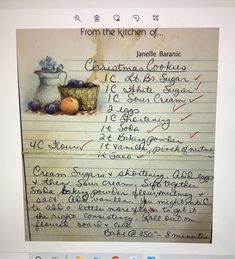 From the kitchen of...
Janelle Baranic
Christmas Cookies
1 C Lt. Br. Sugar
1 C White Sugar
1 C Sour Cream
2 eggs
1 C Shortening
1 t Soda
2 t Baking powder
4 C Flour 1 t Vanilla, pinch of nutmeg
Cream Sugar & shortening. Add eggs
& then Sour Cream. Sift together
Soda, Baking powder, flour, nutmeg &
salt. Add vanilla. You might need
to add a little more flour to get it
the right consistency. Roll out on
floured board & cut.
Bake @ 350° - 8 minutes